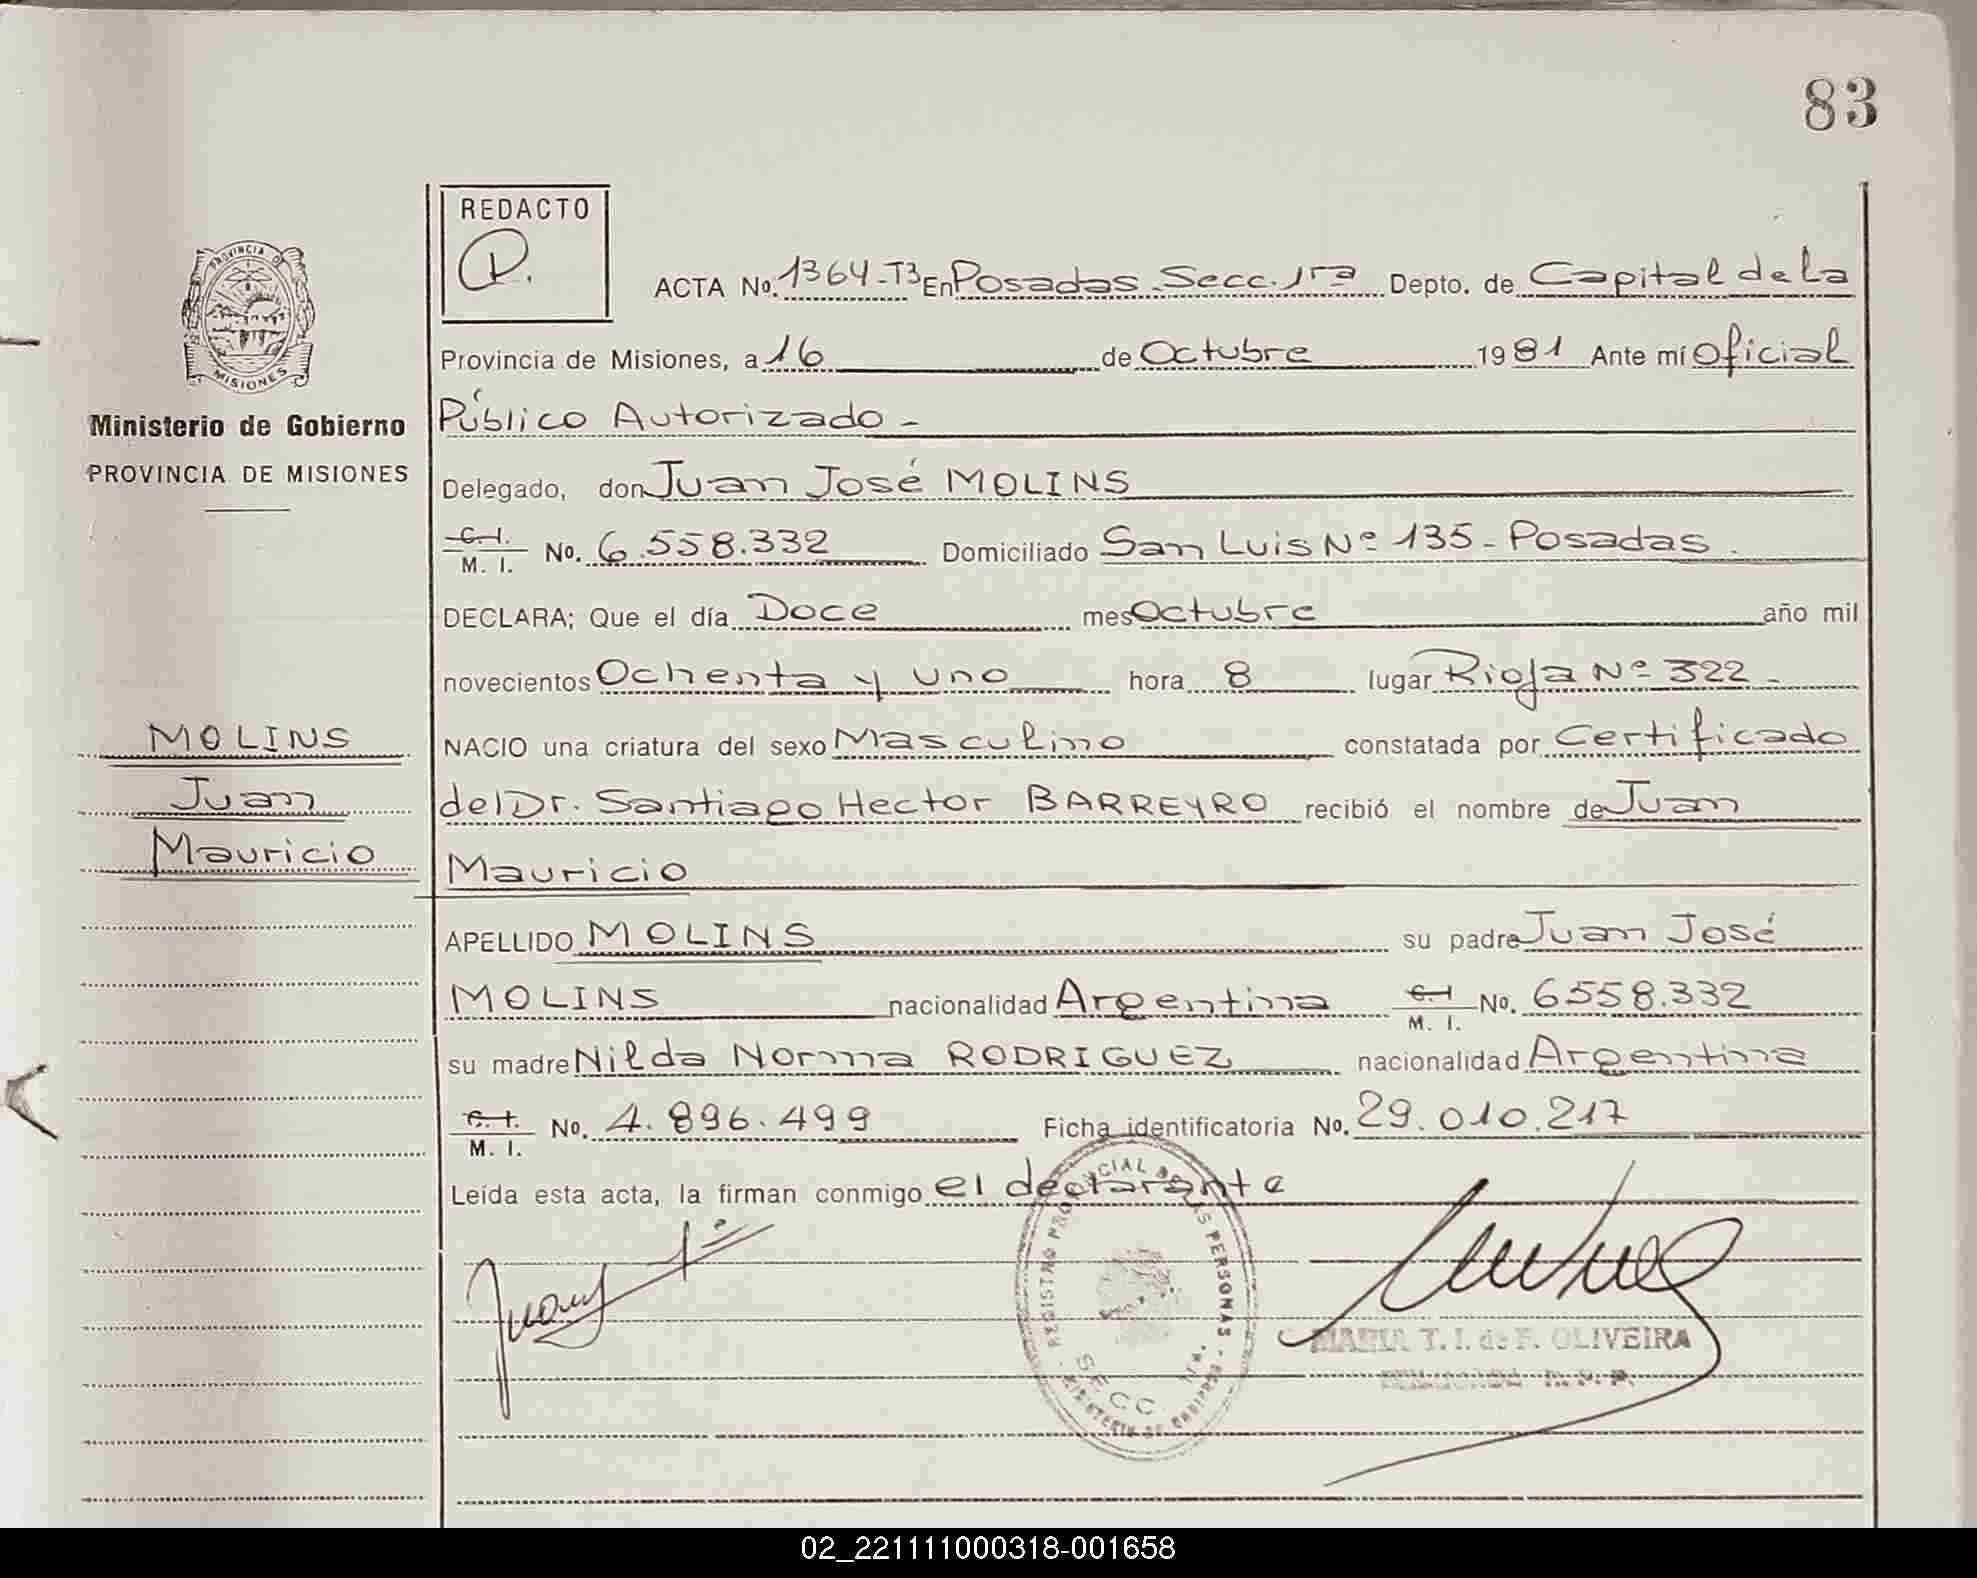 83
REDACTO
P.
PROVINCIA DE
MISIONES
Ministerio de Gobierno
PROVINCIA DE MISIONES
MOLINS
Juan
Mauricio
ACTA No. 1364-T3 En Posadas. Secc. 1ra Depto. de Capital de La
Provincia de Misiones, a 16 de Octubre 1981 Ante mí Oficial
Público Autorizado -
Delegado, don Juan José MOLINS
C. I. M. I. No. 6.558.332 Domiciliado San Luis Nº 135 - Posadas.
DECLARA; Que el día Doce mes Octubre año mil
novecientos Ochenta y uno hora 8 lugar Rioja Nº 322 -
NACIO una criatura del sexo Masculino constatada por Certificado
del Dr. Santiago Hector BARREYRO recibió el nombre de Juan
Mauricio
APELLIDO MOLINS su padre Juan José
MOLINS nacionalidad Argentina C. I M. I. No. 6558.332
su madre Nilda Norma RODRIGUEZ nacionalidad Argentina
C. I. M. I. No. 4.896.499 Ficha identificatoria No. 29.010.217
Leída esta acta, la firman conmigo el declarante
REGISTRO PROVINCIAL DE LAS PERSONAS - MINISTERIO DE GOBIERNO -
SECC. 1ra.
MARIA T. I. de F. OLIVEIRA
02_221111000318-001658